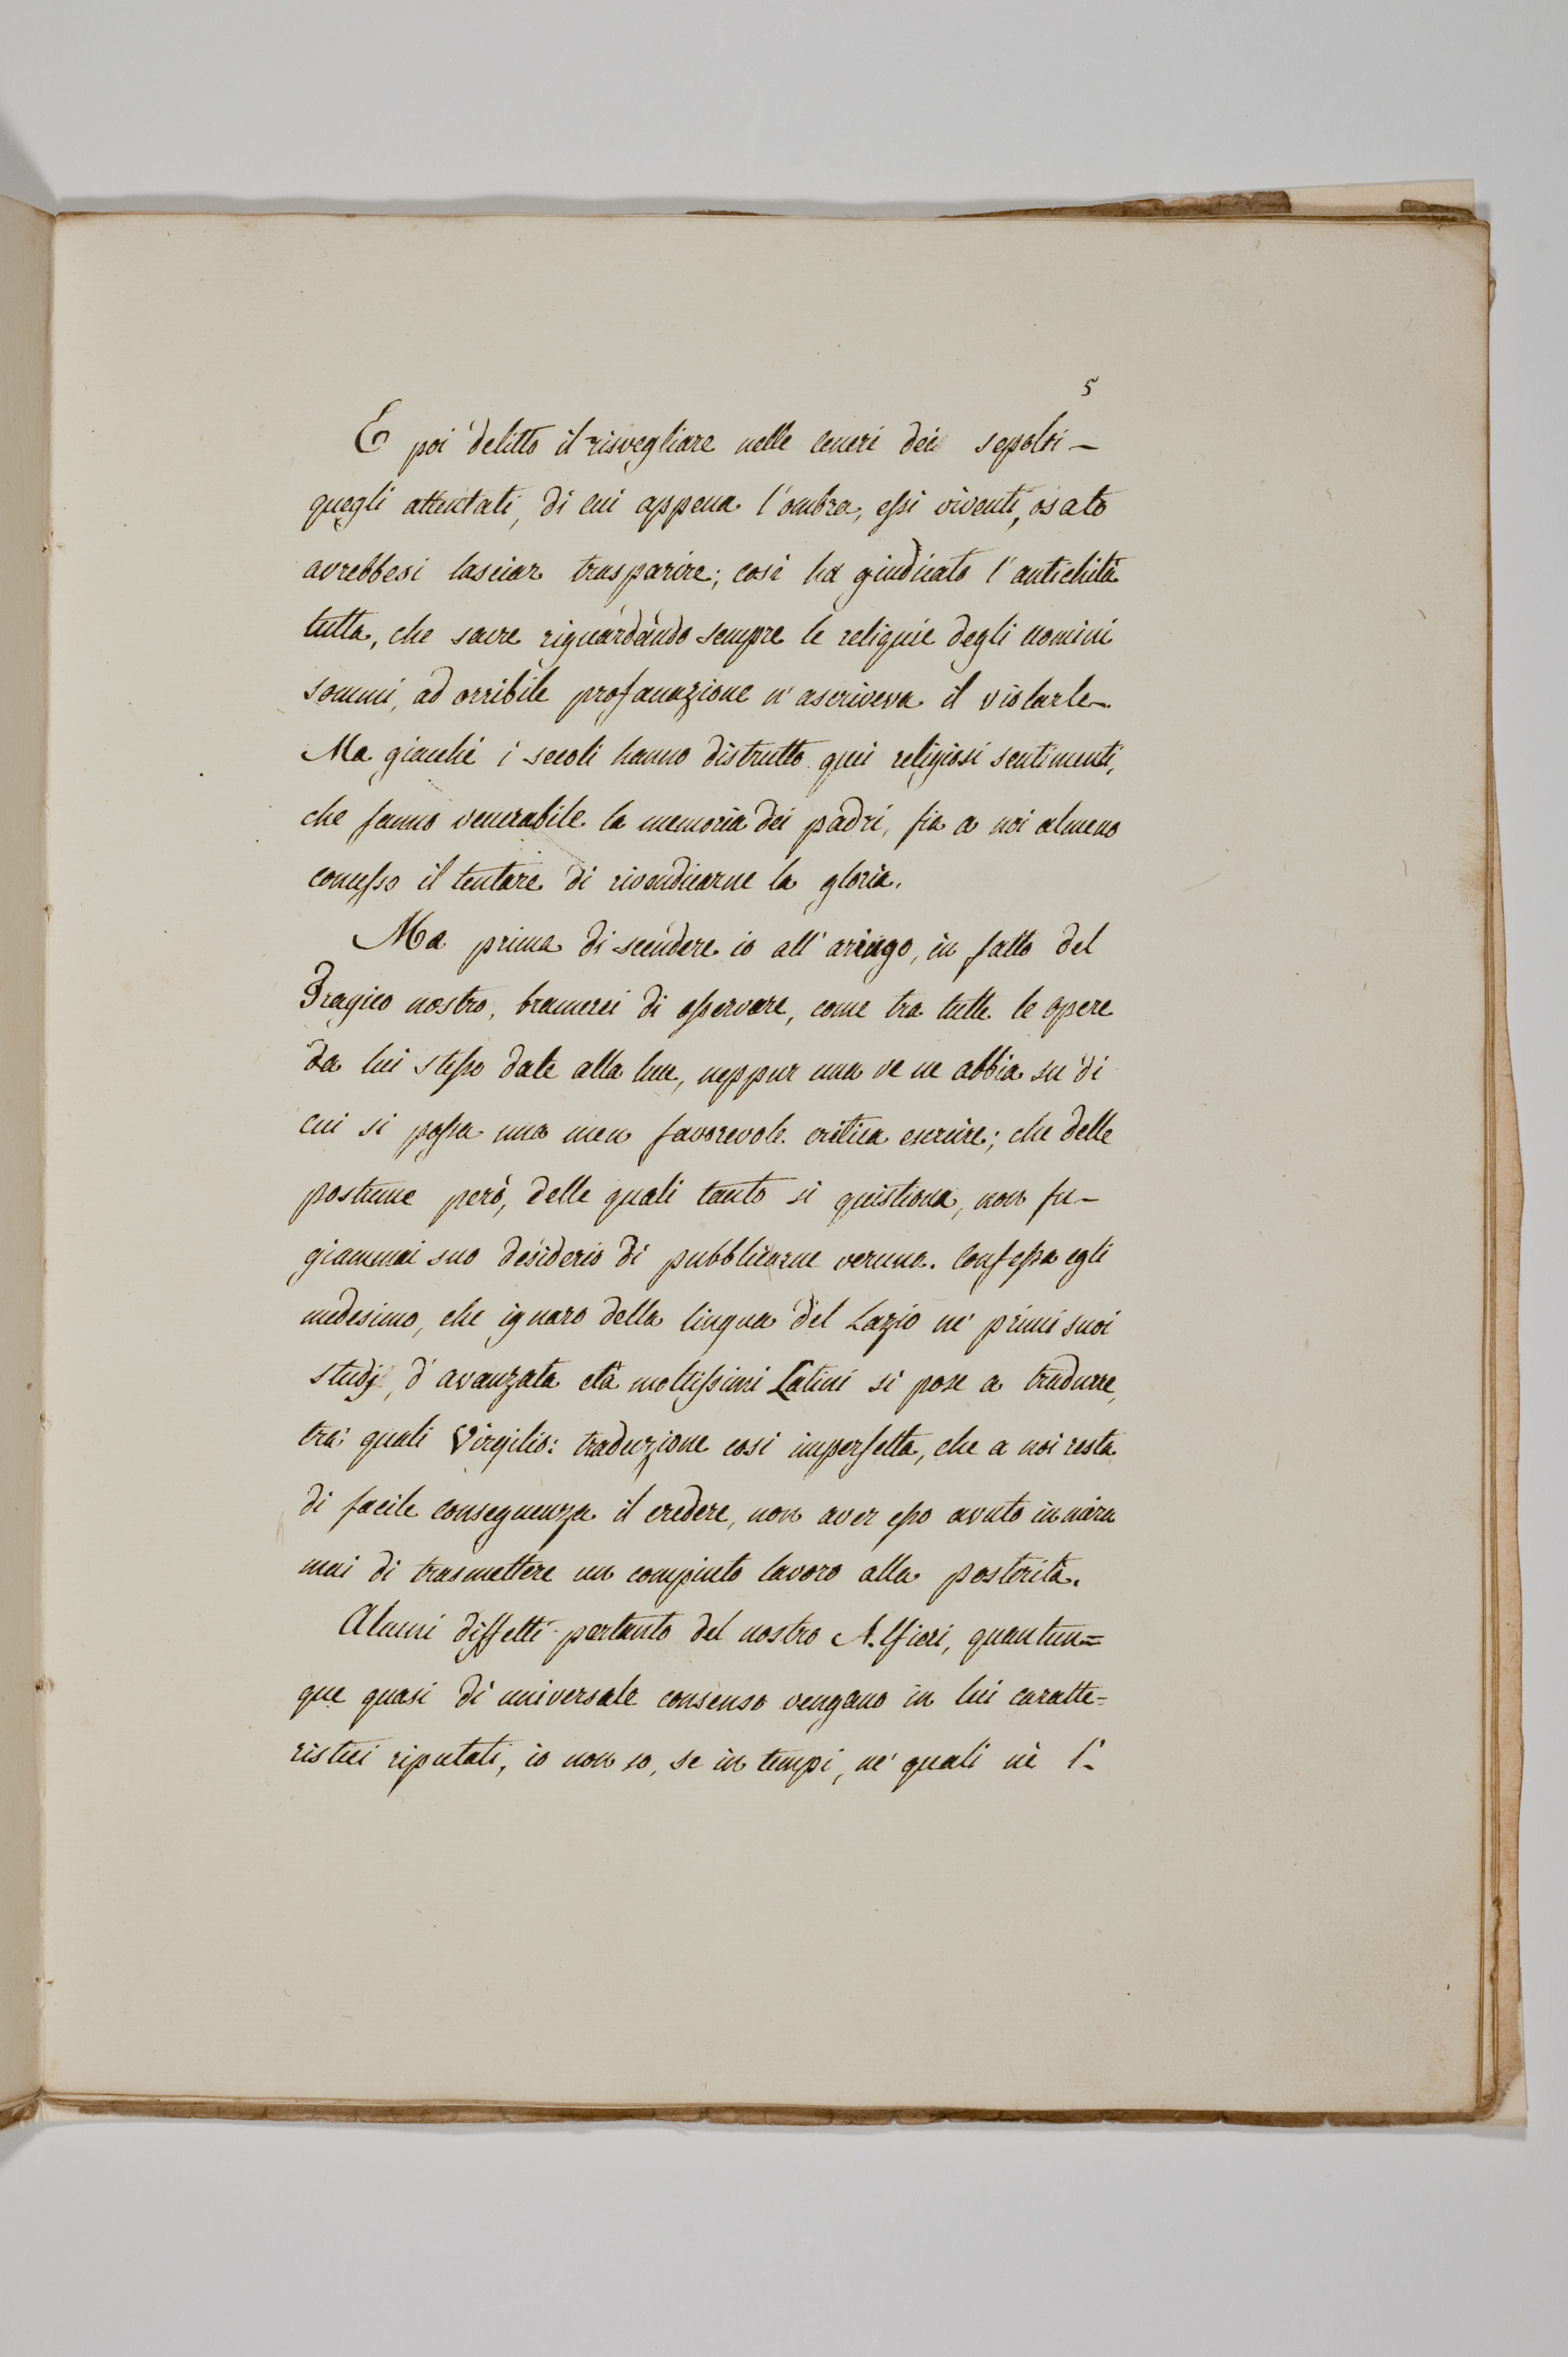 5
E poi delitto il risvegliare nelle ceneri dei sepolti –
quegli attentati, di cui appena l'ombra, essi viventi, osato
avrebbesi lasciar trasparire; così ha giudicato l'antichità
tutta, che sacre riguardando sempre le reliquie degli uomini
sommi, ad orribile profanazione n'ascriveva il violarle.
Ma giacchè i secoli hanno distrutto quei religiosi sentimenti,
che fanno venerabile la memoria dei padri, fia a noi almeno
concesso il tentare di rivendicarne la gloria.
Ma prima di scendere io all'aringo, in fatto del
Tragico nostro, bramerei di osservare, come tra tutte le opere
da lui stesso date alla luce, neppur una ve ne abbia su di
cui si possa una men favorevole critica escrire; che delle
postume però, delle quali tanto si quistiona, non fu –
giammai suo desiderio di pubblicarne veruna. Confessa egli
medesimo, che ignaro della lingua del Lazio ne' primi suoi
studj, d'avanzata età moltissimi Latini si pose a tradurre,
tra' quali Virgilio: traduzione così imperfetta, che a noi resta
di facile conseguenza il credere, non aver esso avuto in mira
mai di trasmettere un compiuto lavoro alla posterità.
Alcuni diffetti pertanto del nostro Alfieri, quantun=
que quasi di universale consenso vengano in lui caratte=
ristici riputati, io non so, se in tempi, ne' quali nè l'